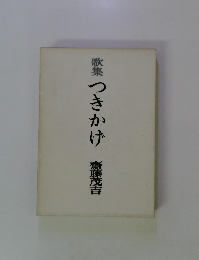 歌集
つきかげ
齋藤茂吉